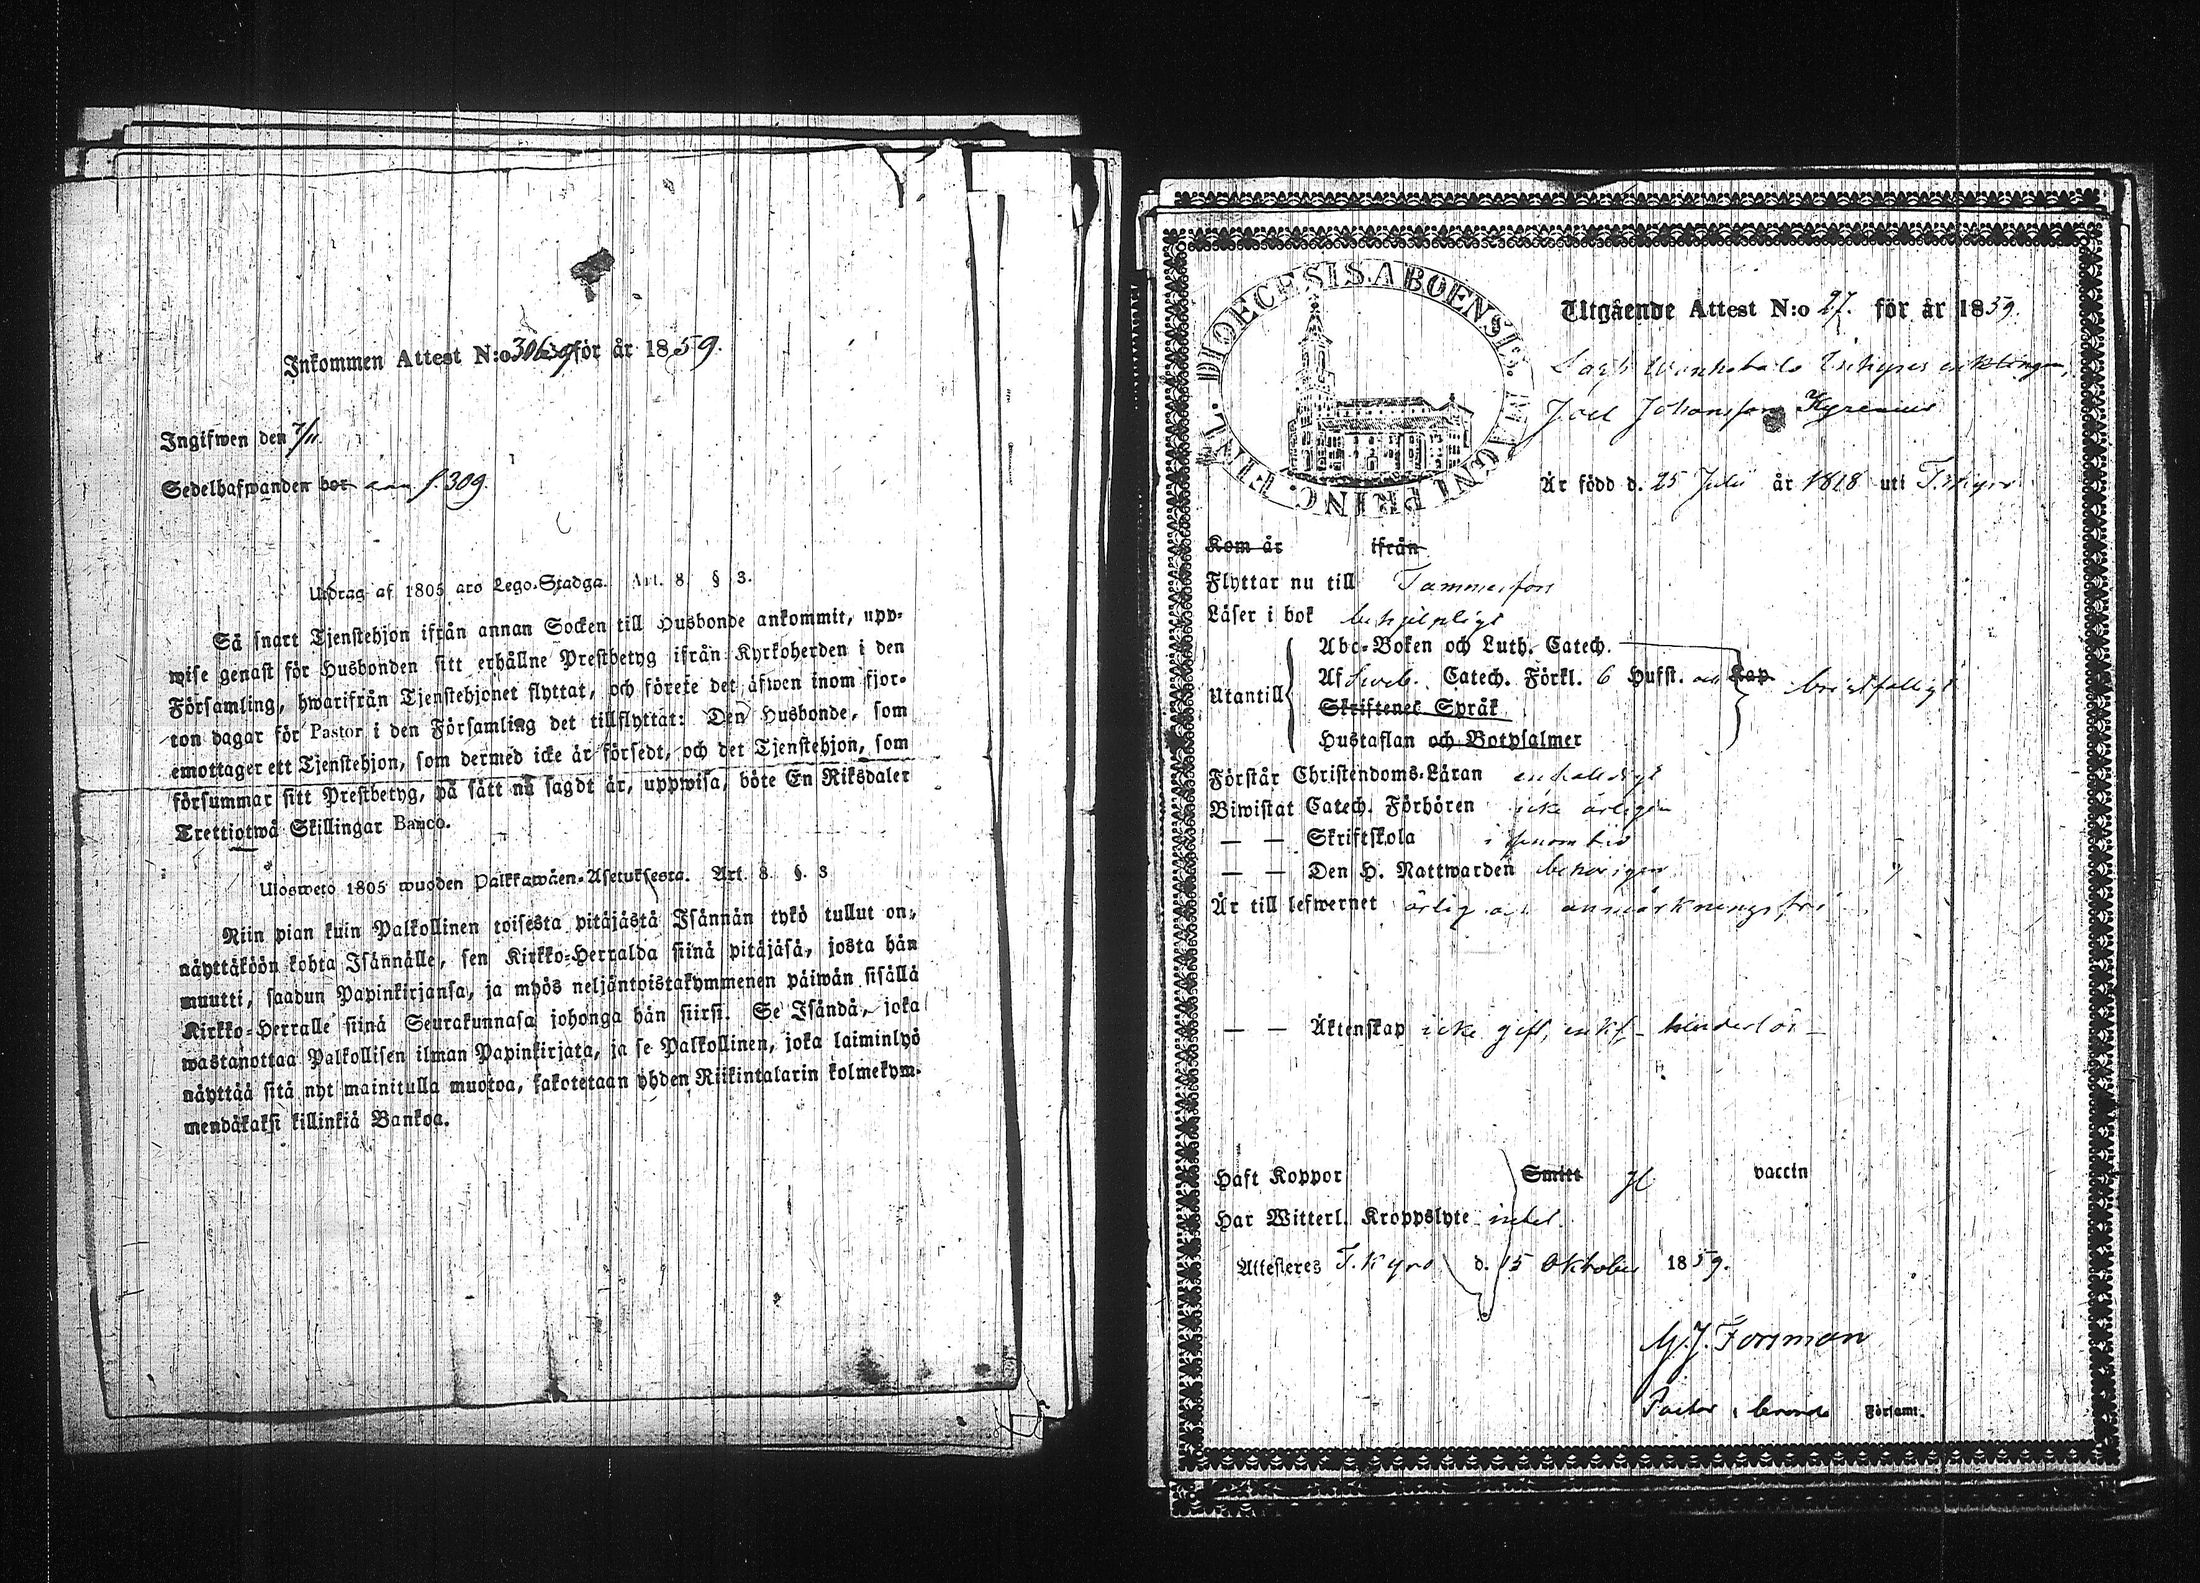 Inkommen Attest N:o 306 för år 1859.
Ingifwen den 7/11.
Sedelhafwanden bor f 309.
Utdrag af 1805 års Lego-Stadga. Art. 8. § 3.
Så snart Tjenstehjon ifrån annan Socken till Husbonde ankommit, upp-
wise genast för Husbonden sitt erhållne Prestbetyg ifrån Kyrkoherden i den
Församling, hwarifrån Tjenstehjonet flyttat, och förete det äfwen inom fjor-
ton dagar för Pastor i den Församling det tillflyttat: Den Husbonde, som
emottager ett Tjenstehjon, som dermed icke är försedt, och det Tjenstehjon, som
försummar sitt Prestbetyg, på sätt nu sagdt är, uppwisa, böte En Riksdaler
Trettiotwå Skillingar Banco.
Ulosweto 1805 wuoden Palkkawäen-Asetuksesta. Art. 8. §. 3
Niin pian kuin Palkollinen toisesta pitäjästä Isännän tykö tullut on,
näyttäköön kohta Isännälle, sen Kirkko-Herralda siinä pitäjäsä, josta hän
muutti, saadun Papinkirjansa, ja myös neljäntoistakymmenen päiwän sisällä
Kirkko-Herralle siinä Seurakunnasa johonga hän siirsi. Se Isändä, joka
wastanottaa Palkollisen ilman Papinkirjata, ja se Palkollinen, joka laiminlyö
näyttää sitä nyt mainitulla muotoa, sakotetaan yhden Riikintalarin kolmekym-
mendäkaksi killinkiä Bankoa.
DIOECESIS ABOENSIS MAGNI PRINC. FINL.
Utgående Attest N:o 27. för år 1859.
enklingen,
Joel Johansson Kyrenius
Är född d. 25 Julii år 1818 uti T.Kyro
Kom år ifrån
Flyttar nu till Tammerfors
Läser i bok behjelpligt
Utantill
Abc-Boken och Luth. Catech.
Af Sveb. Catech. Förkl. 6 Hufst. och Kap. bristfälligt
Skriftenes Språk
Hustaflan och Botpsalmer
Förstår Christendoms-Läran enfaldigt
Biwistat Catech. Förhören icke årligen
— — Skriftskola i sinom tid
— — Den H. Nattwarden behörigen
Är till lefwernet ärlig och anmärkningsfri
— — Äktenskap icke gift, enkl. hinderlös
Haft Koppor Smitt vaccin
Har Witterl. Kroppslyte intet.
Attesteres T.Kyro d. 15 Oktober 1859.
Forsman
Pastor i Församl.